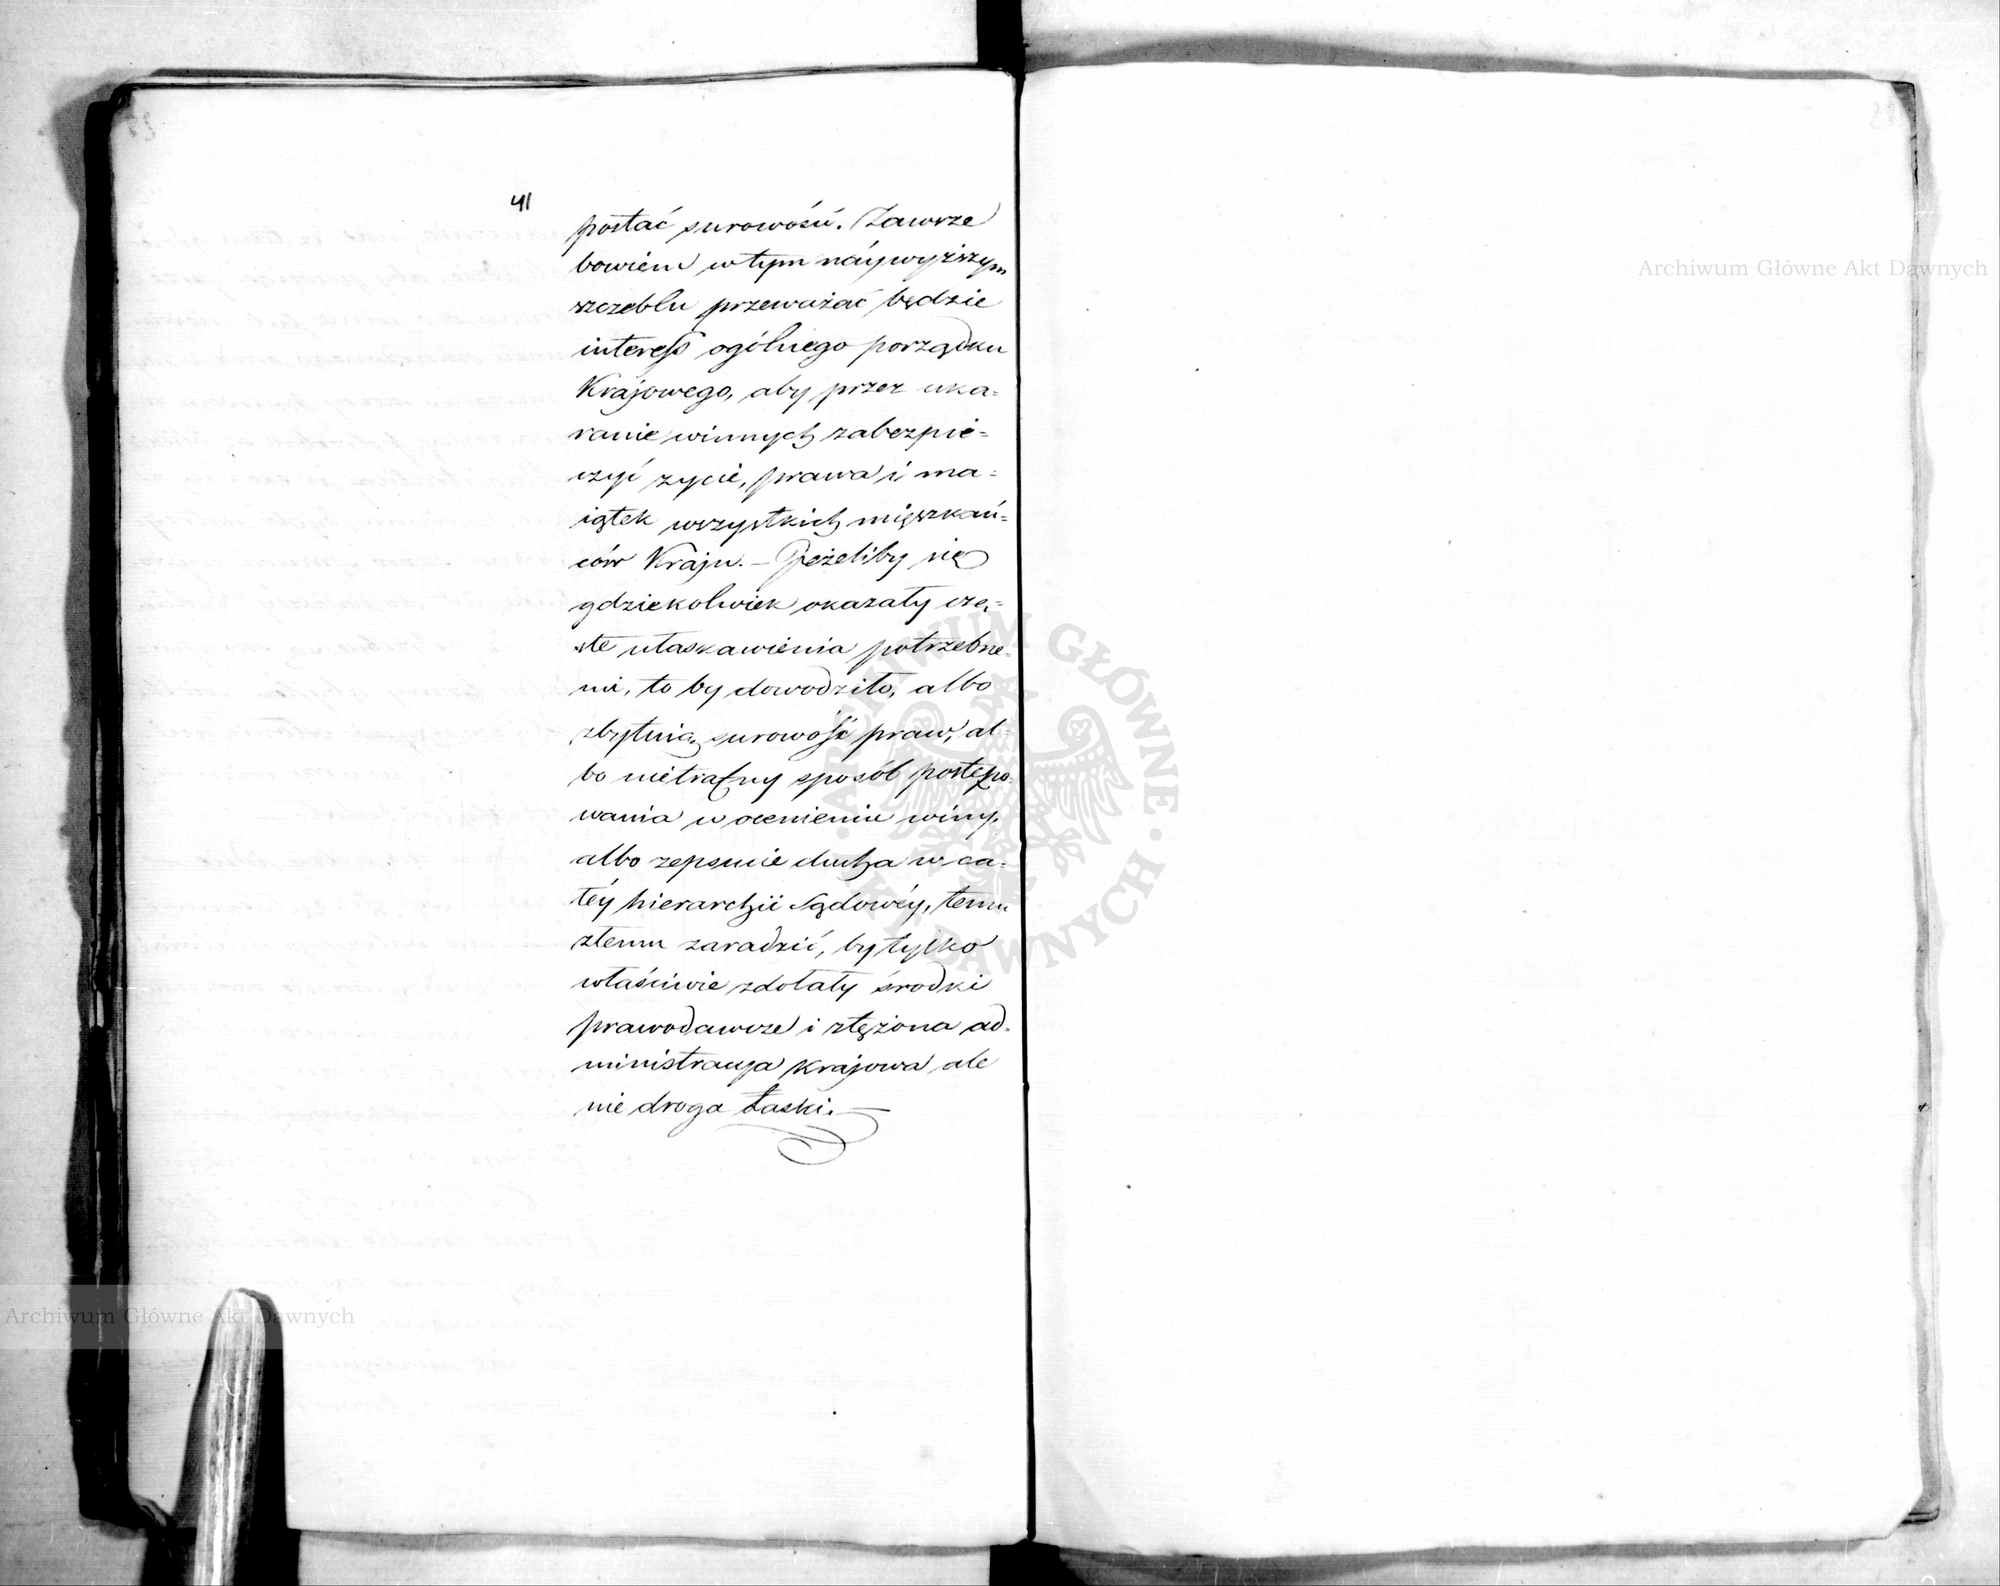 41
postać surowości. Zawsze
bowiem w tym náywyższym
szczeblu przeważać będzie
interess ogólnego porządku
Krajowego, aby przez uka=
ranie winnych zabezpie=
czyć zycie, prawa i ma=
iątek wszystkich mięszkań=
ców Kraju. — Jeżeliby się
gdziekolwiek okazały czę=
ste ułaskawienia potrzebne=
mi, to by dowodziło, albo
zbytnią surowość praw, al=
bo nietrafny sposób postępo=
wania w ocenieniu winy,
albo zepsucie ducha w ca=
łéy hierarchii Sądowéy, temu
złemu zaradzić, by tylko
właściwie zdołały środki
prawodawcze i stężona ad=
ministracya krajowa ale
nie droga Łaski. —
Archiwum Główne Akt Dawnych
Archiwum Główne Akt Dawnych
ARCHIWUM GŁÓWNE AKT DAWNYCH